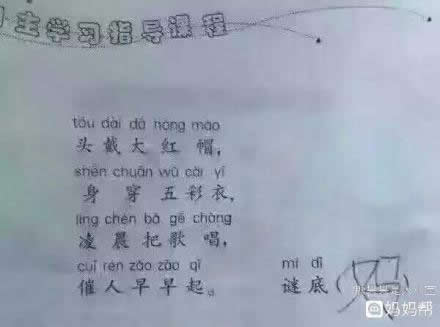 主学习指导课程
tóu dài dà hóng mào
头戴大红帽，
shēn chuān wǔ cǎi yī
身穿五彩衣，
líng chén bǎ gē chàng
凌晨把歌唱，
cuī rén zǎo zǎo qǐ
催人早早起。
mí dǐ
谜底（妈）
妈妈帮